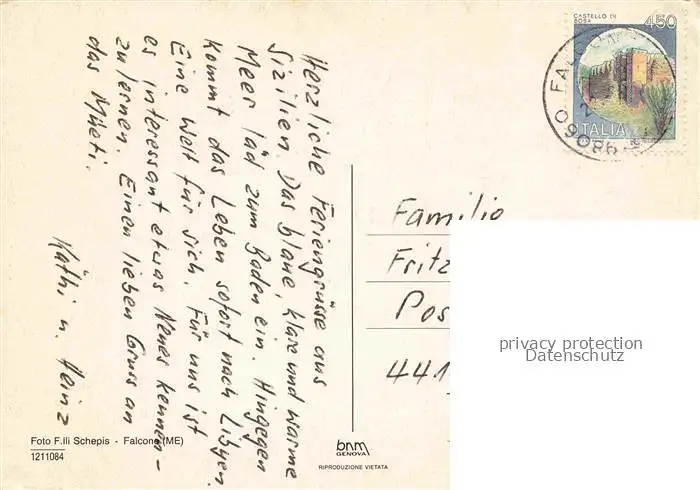 Herzliche Feriengrüsse aus
Sizilien. Das blaue, klare und warme
Meer läd zum Baden ein. Hingegen
kommt das Leben sofort nach Libyen.
Eine Welt für sich. Für uns ist
es interessant etwas Neues kennen-
zulernen. Einen lieben Gruss an
das Müeti.
Käthi u. Heinz
CASTELLO DI
BOSA
450
ITALIA
98060 FALCONE
Familie
Fritz
Pos
441
privacy protection
Datenschutz
Foto F.lli Schepis - Falcone (ME)
1211084
bnm
GENOVA
RIPRODUZIONE VIETATA